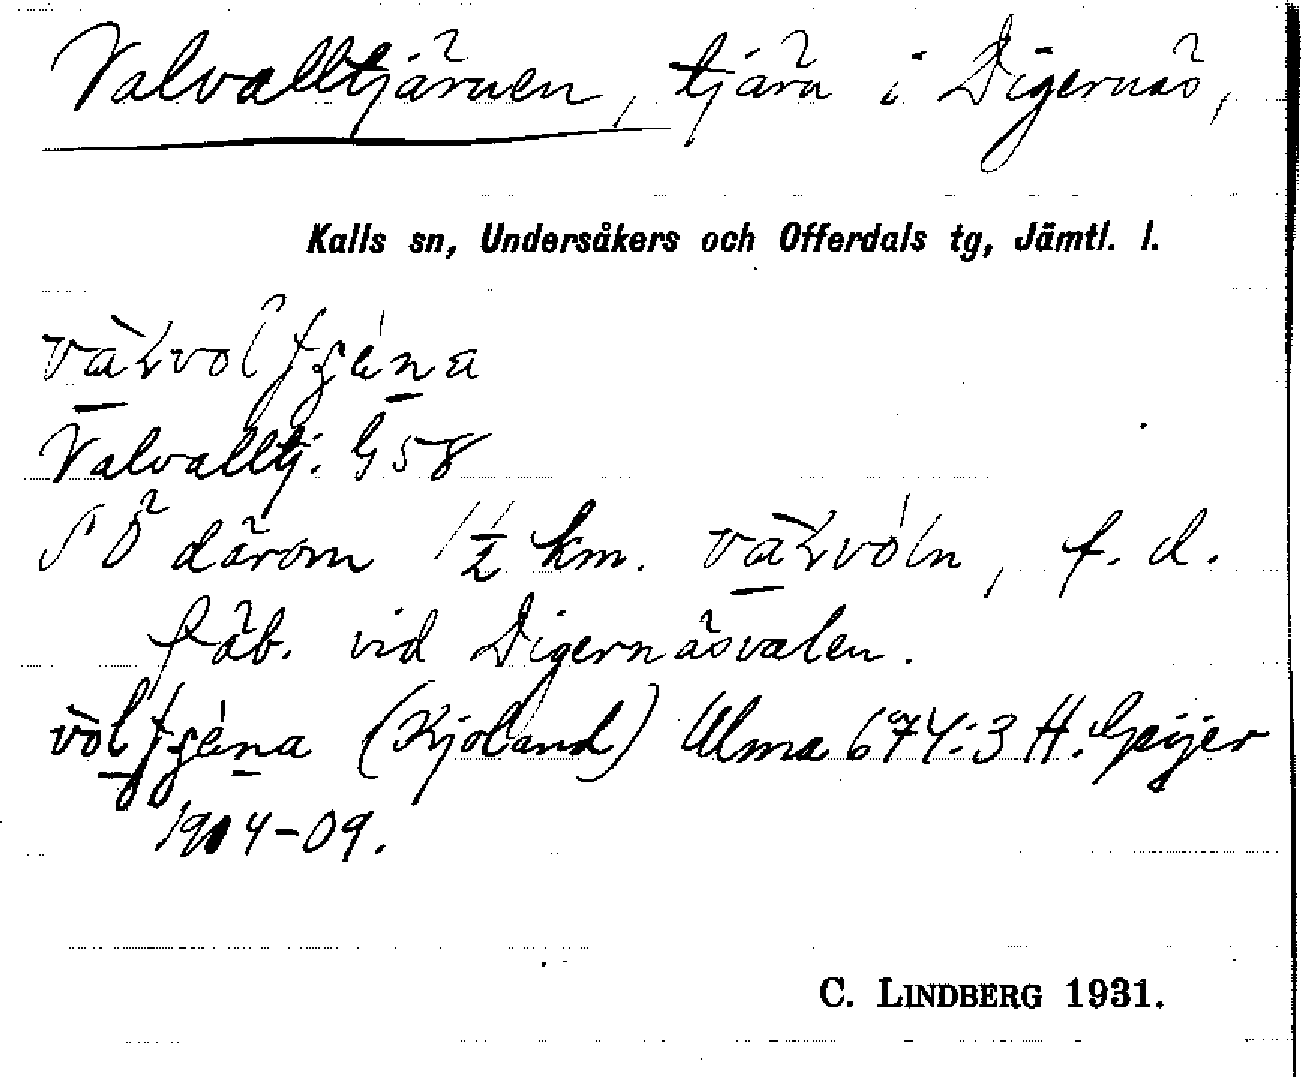 Valvalltjärnen, tjärn i Digernäs,
Kalls sn, Undersåkers och Offerdals tg, Jämtl. l.
Valvalltj. G 58
SÖ därom 1 1/2 km. f. d.
fäb. vid Digernäsvalen.
(Kjoland) Ulma 674:3 H. Geijer
1904-09.
C. LINDBERG 1931.